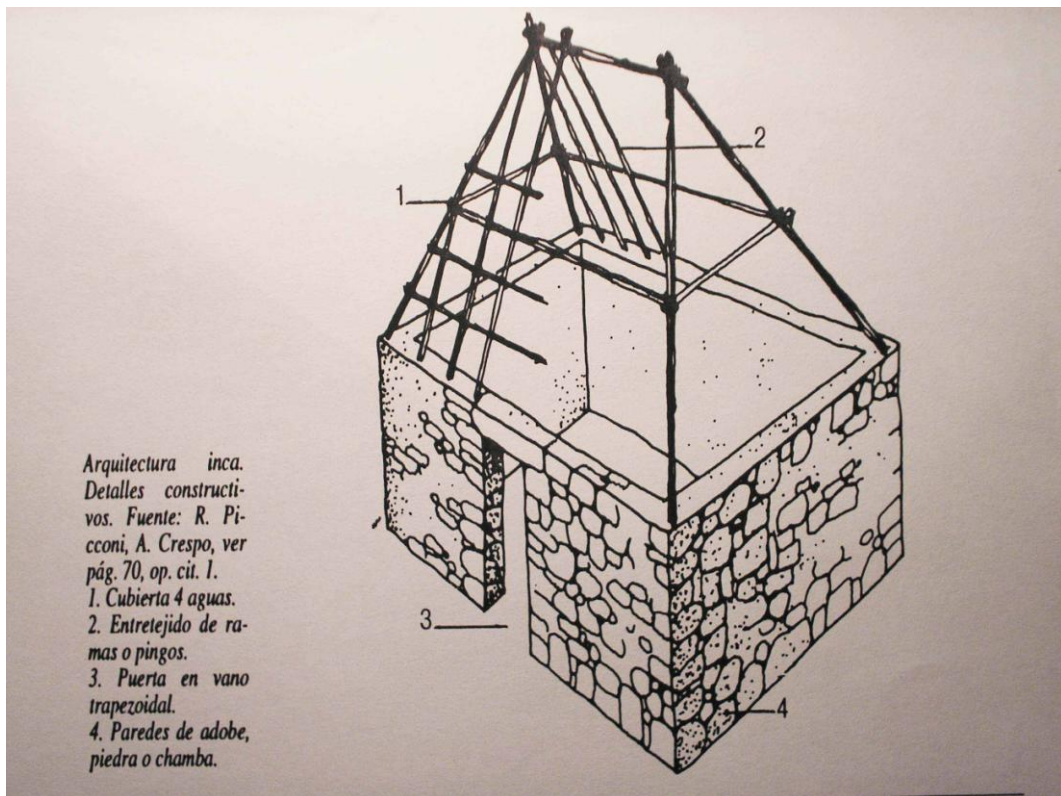 1
2
3
4
Arquitectura inca.
Detalles constructi-
vos. Fuente: R. Pi-
cconi, A. Crespo, ver
pág. 70, op. cit. 1.
1. Cubierta 4 aguas.
2. Entretejido de ra-
mas o pingos.
3. Puerta en vano
trapezoidal.
4. Paredes de adobe,
piedra o chamba.